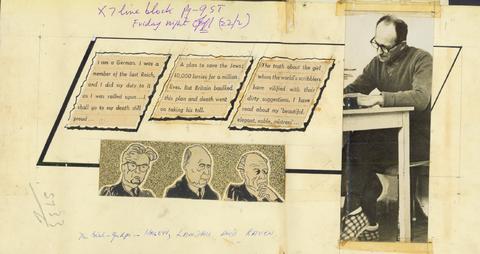 X 7 line block pg - 9 ST
Friday night (22/2)
I am a German. I was a
member of the last Reich,
and I did my duty to it
as I was called upon . . . I
shall go to my death still
proud . . .
A plan to save the Jews;
10,000 lorries for a million
lives. But Britain baulked
this plan and death went
on taking his toll.
The truth about the girl
whom the world's scribblers
have vilified with their
dirty suggestions. I have
read about my 'beautiful,
elegant, noble, mistress' . . .
The trial-judges — HALEVY, LANDAU, AND RAVEH